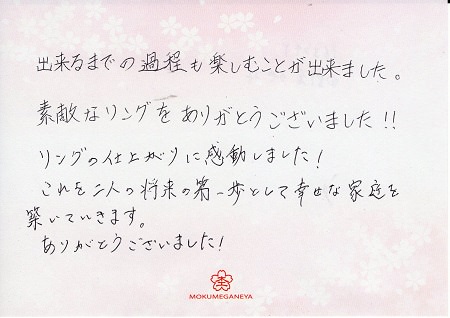 出来るまでの過程も楽しむことが出来ました。
素敵なリングをありがとうございました!!
リングの仕上がりに感動しました!
これを二人の将来の第一歩として幸せな家庭を
築いていきます。
ありがとうございました!
MOKUMEGANEYA